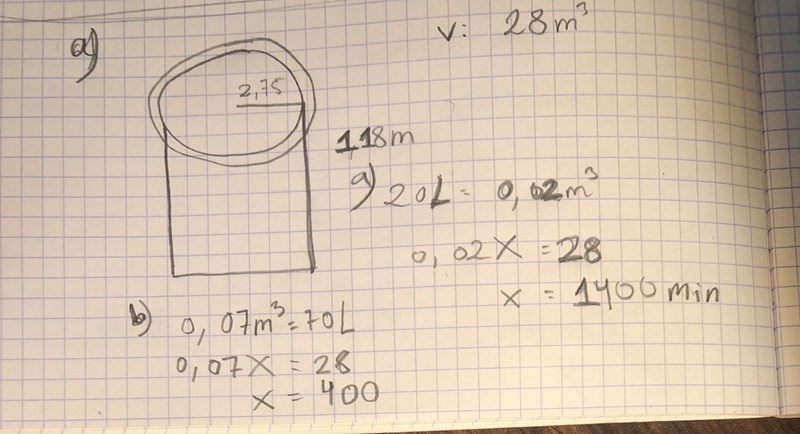 a)
V: 28m³
2,75
1,18m
a) 20L = 0,02m³
0,02X = 28
x = 1400min
b) 0,07m³ = 70L
0,07X = 28
x = 400